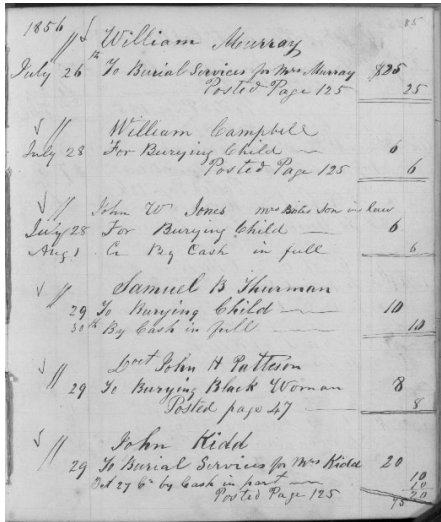 85
1856 William Murray
July 26th To Burial Services for Mrs Murray $25
Posted Page 125 25
William Campbell
July 28 For Burying Child 6
Posted Page 125 6
John W Jones Mrs Son in Law
July 28 For Burying Child 6
Aug 1 Cr By Cash in full 6
Samuel B Thurman
29 To Burying Child 10
30th By Cash in full 10
Doct John H Patteson
29 To Burying Black Woman 8
Posted page 47 8
John Kidd
29 To Burial Services for Mrs Kidd 20
27 Cr by Cash in part 10
Posted Page 125 10
20